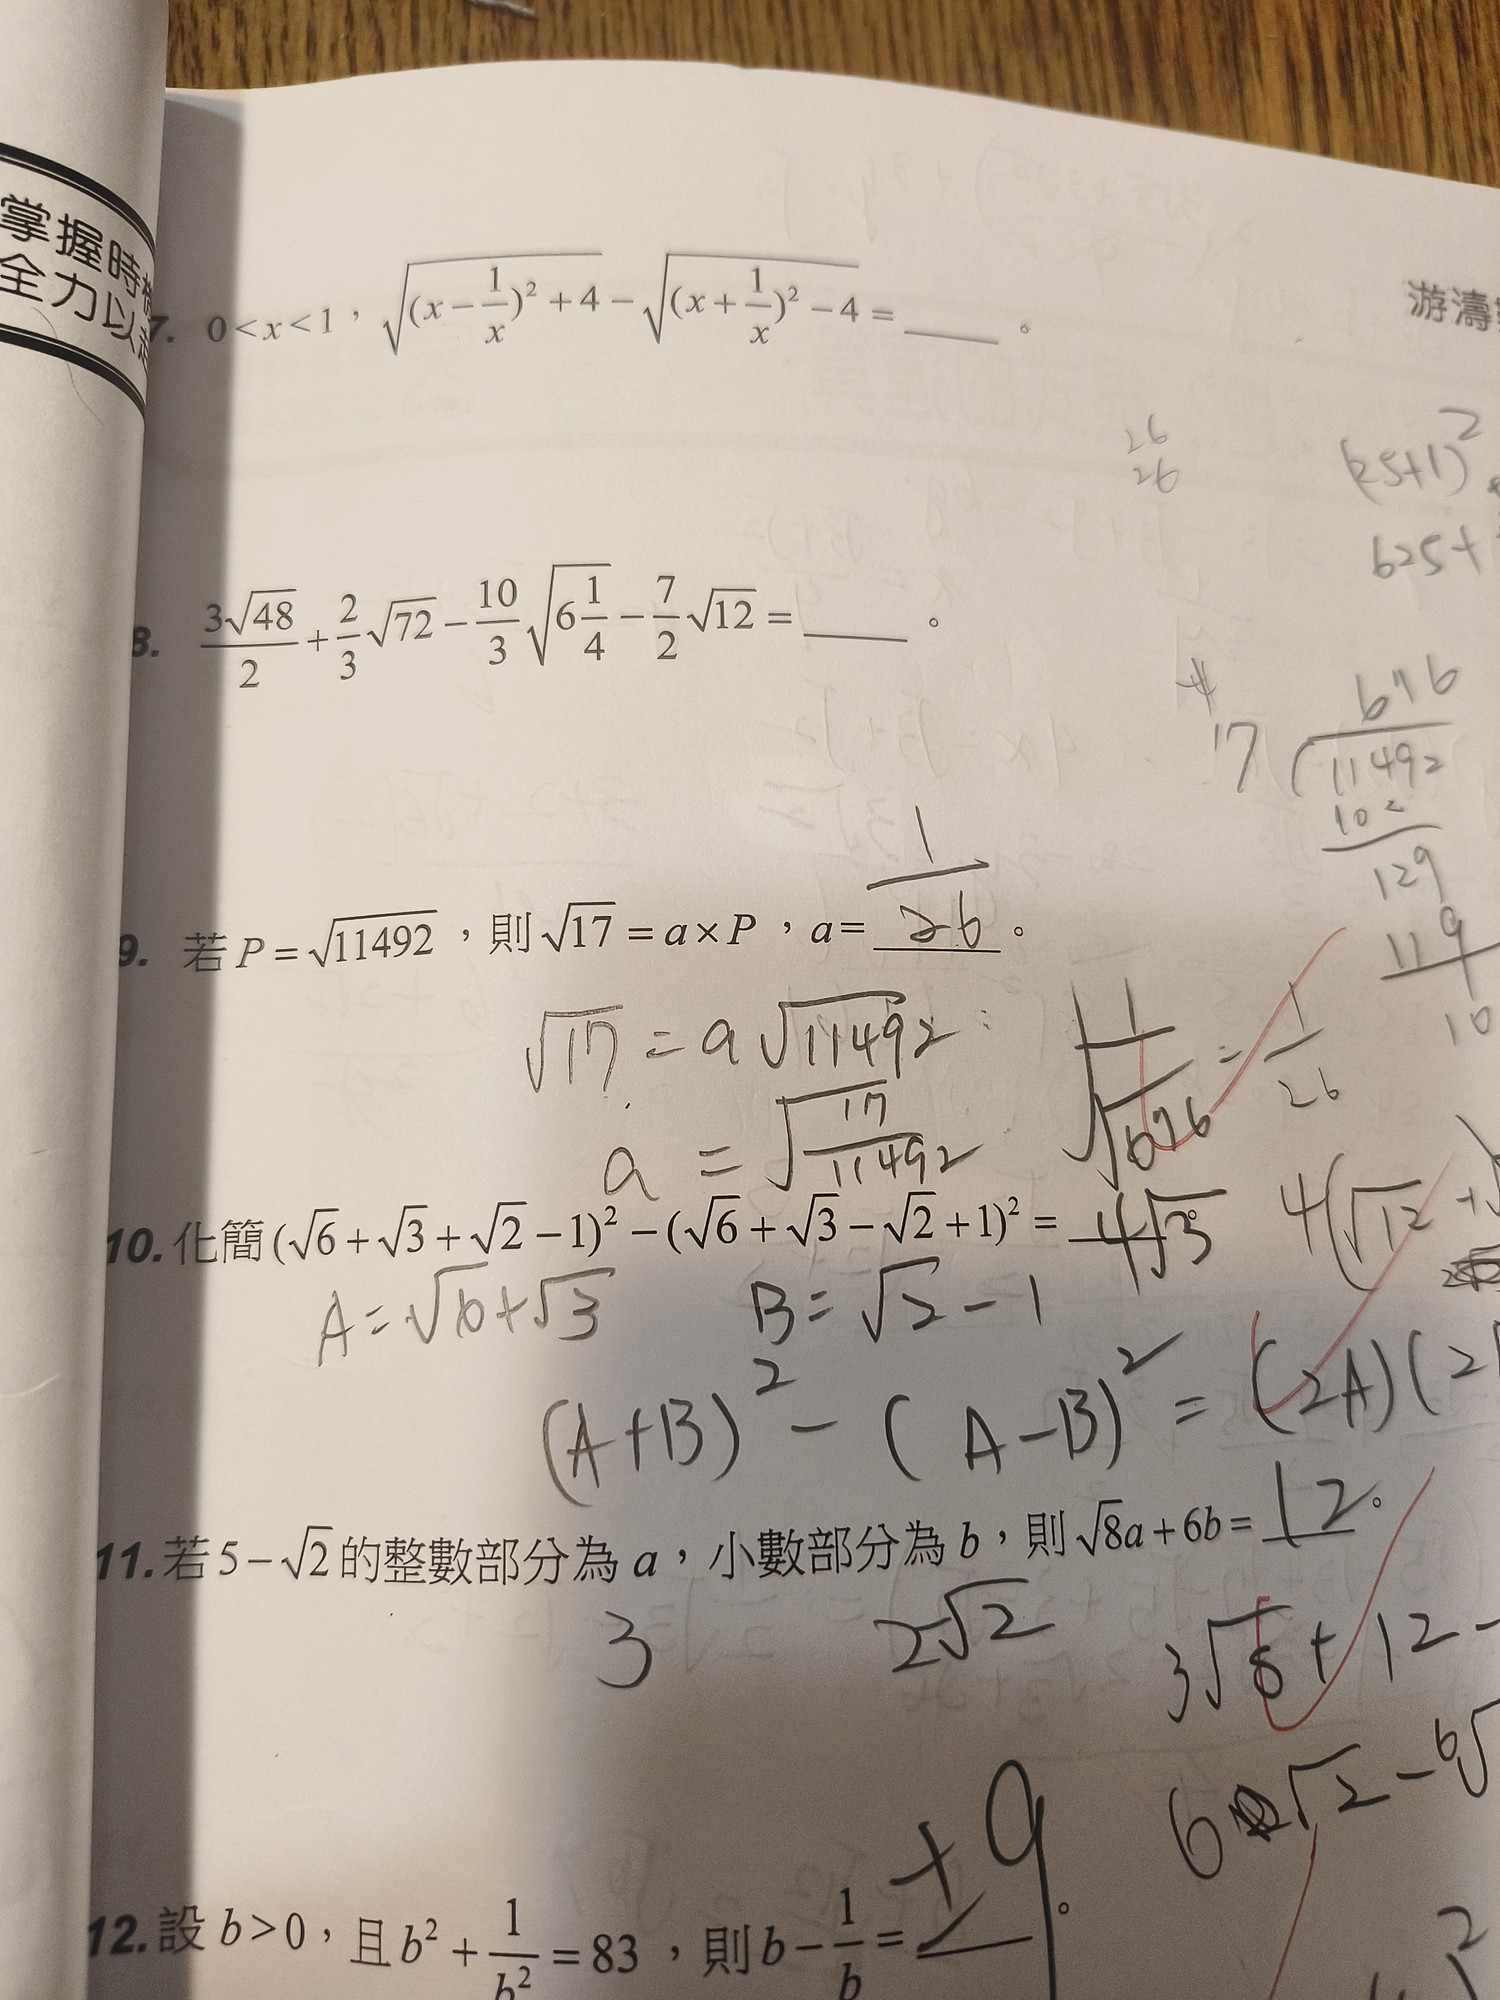 掌握時
全力以
游濤
7. 0<x<1，√((x−1/x)²+4)−√((x+1/x)²−4)=____。
26
26
(25+1)²
625+
8. 3√48/2+2/3√72−10/3√(6 1/4)−7/2√12=____。
676
17 11492
102
129
119
10
9. 若P=√11492，則√17=a×P，a=1/26。
√17=a√11492
√(1/676)=1/26
a=√(17/11492)
10. 化簡(√6+√3+√2−1)²−(√6+√3−√2+1)²=4√3。
4(√12+
A=√6+√3 B=√2−1
(A+B)²−(A−B)²=(2A)(2
11. 若5−√2的整數部分為a，小數部分為b，則√8a+6b=12。
3 2√2 3√8+12−
6√2−6√
12. 設b>0，且b²+1/b²=83，則b−1/b=±9。
2